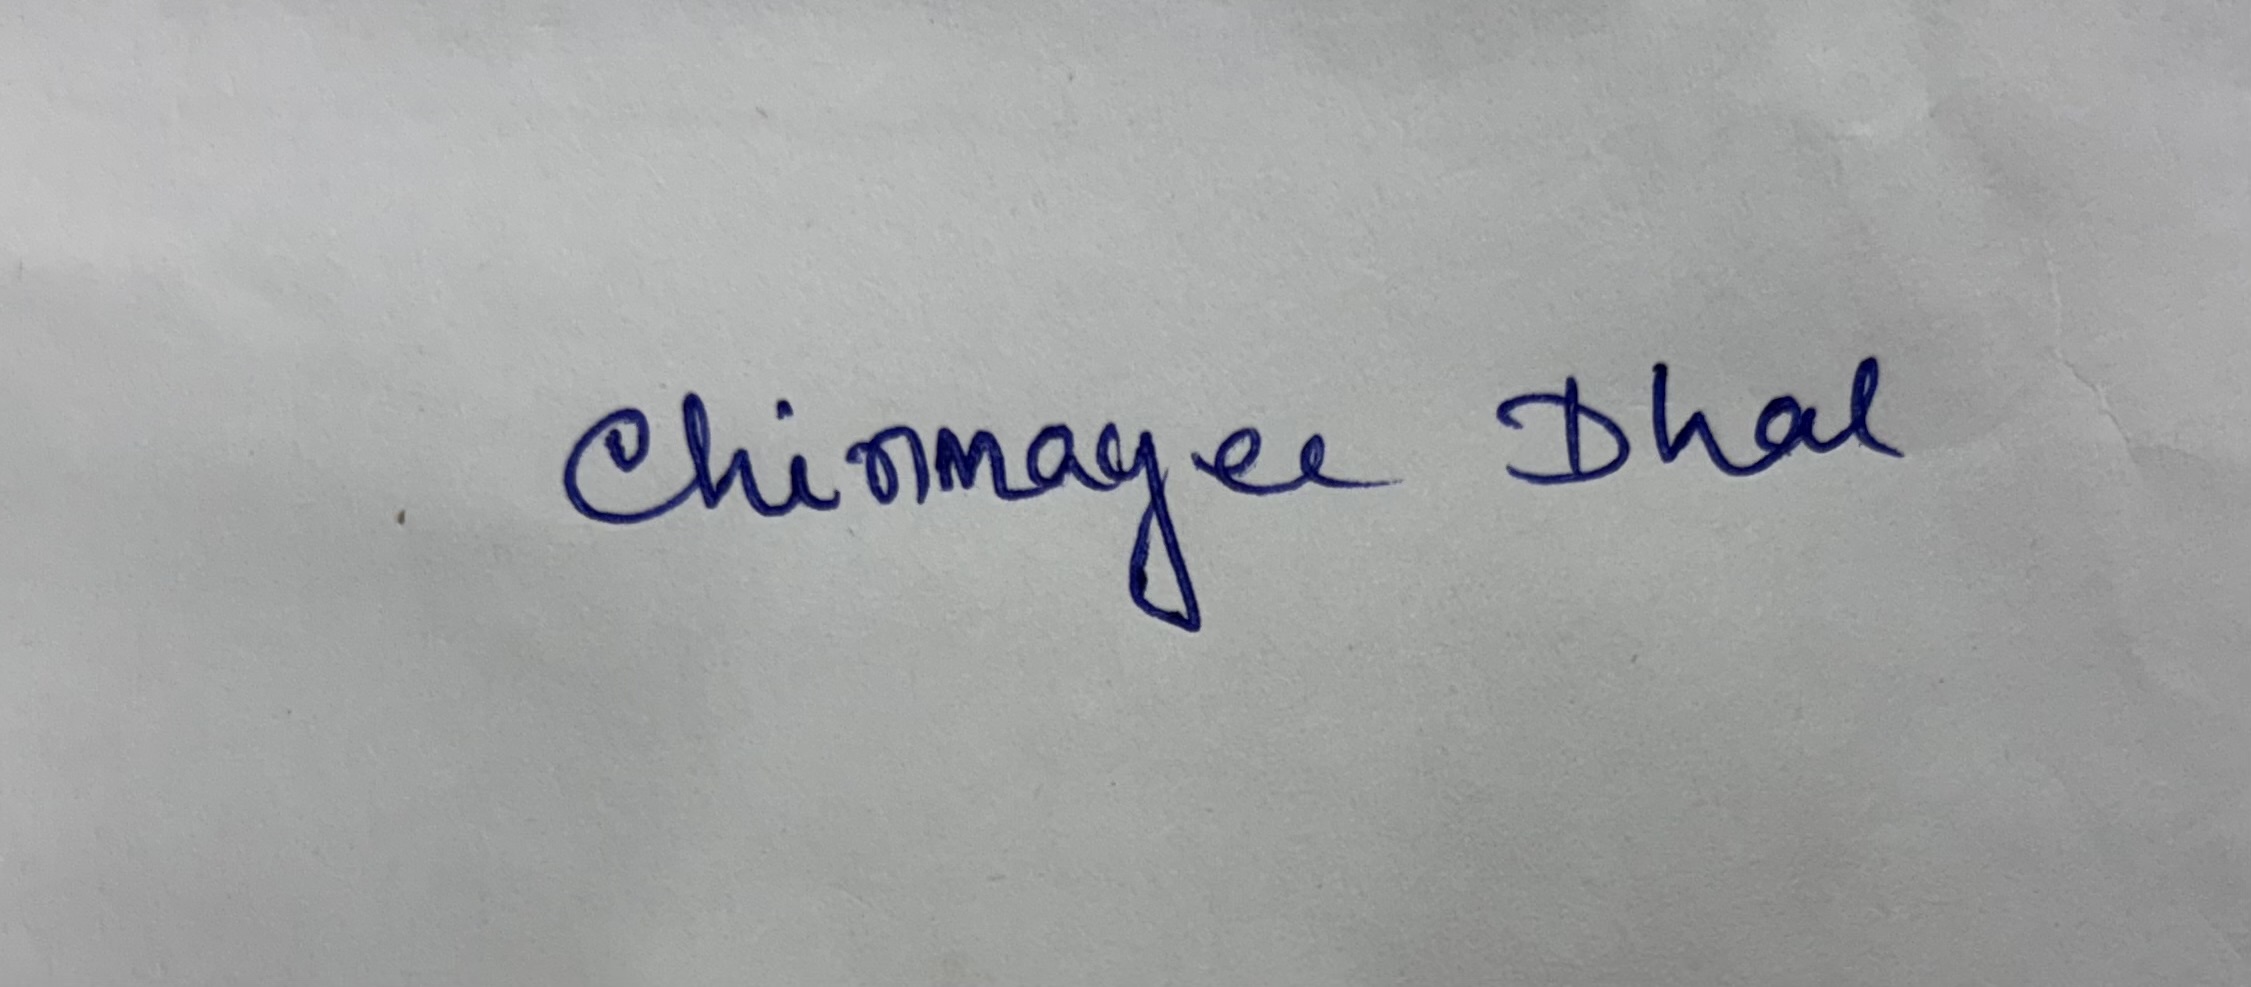 Chinmayee Dhal